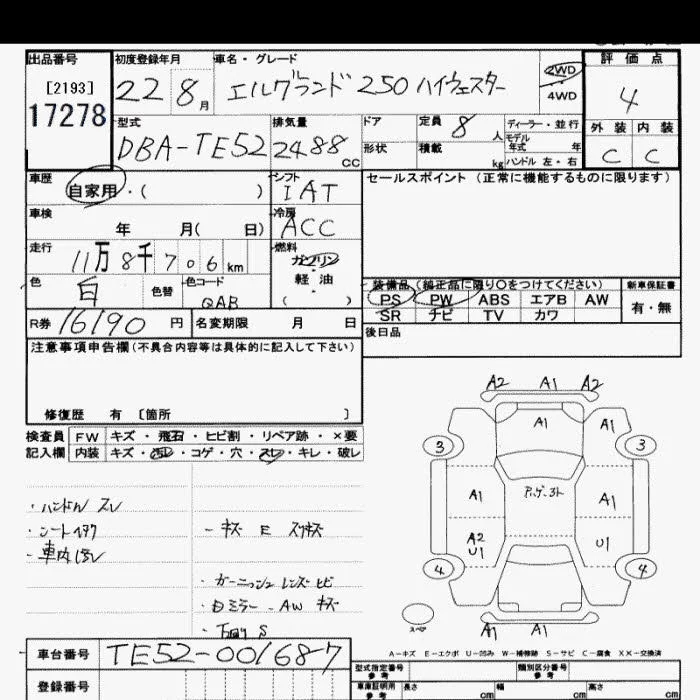 出品番号 初度登録年月 車名・グレード 評価点
[2193] 22 8月 エルグランド 250 ハイウェスター 2WD ・ 4WD 4
17278
型式 排気量 ドア 定員 8人 ディーラー・並行 外装 内装
DBA-TE52 2488cc 形状 積載 kg モデル年式 年 C C
ハンドル 左・右
車歴 シフト セールスポイント (正常に機能するものに限ります)
自家用・( ) IAT
車検 冷房
年 月( 日) ACC
走行 燃料
11万8千706km ガソリン
・
色 色替 色コード 軽油 装備品 (純正品に限り○をつけてください) 新車保証書
白 QAB ( ) PS PW ABS エアB AW 有・無
R券 16190円 名変期限 月 日 SR ナビ TV カワ
後日品
注意事項申告欄(不具合内容等は具体的に記入して下さい)
修復歴 有 〔箇所 〕
検査員 FW キズ・飛石・ヒビ割・リペア跡・×要
記入欄 内装 キズ・汚レ・コゲ・穴・スレ・キレ・破レ
・ハンドル スレ
・車内
・ガーニッシュ レンズ ヒビ
ミラー・AW キズ
A2 A1 A2
A1 A1
3 3
A1 A1
A2 U1 U1
4 4
スペア A1 A1
A-キズ E-エクボ U-凹み W-補修跡 S-サビ C-腐食 XX-交換済
車台番号 TE52-001687
登録番号
型式指定番号 参考 類別区分番号 参考
車庫証明用 参考 長さ cm 幅 cm 高さ cm